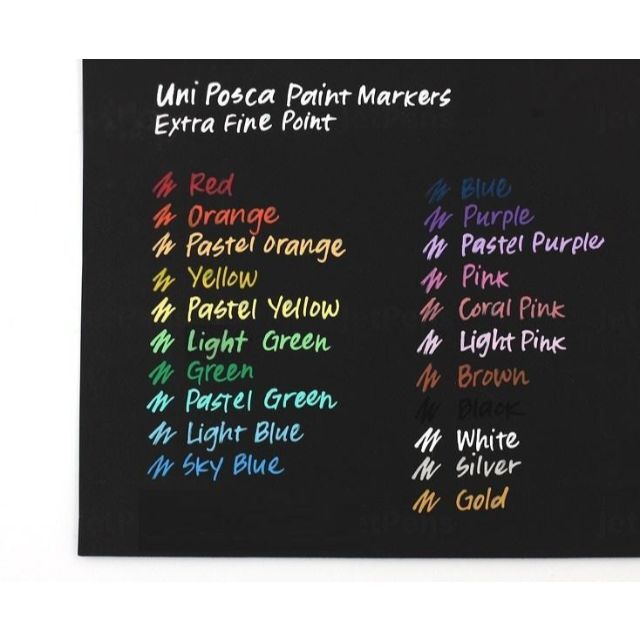 Uni Posca Paint Markers
Extra Fine Point
Red
Orange
Pastel Orange
Yellow
Pastel Yellow
Light Green
Green
Pastel Green
Light Blue
Sky Blue
Blue
Purple
Pastel Purple
Pink
Coral Pink
Light Pink
Brown
Black
White
Silver
Gold